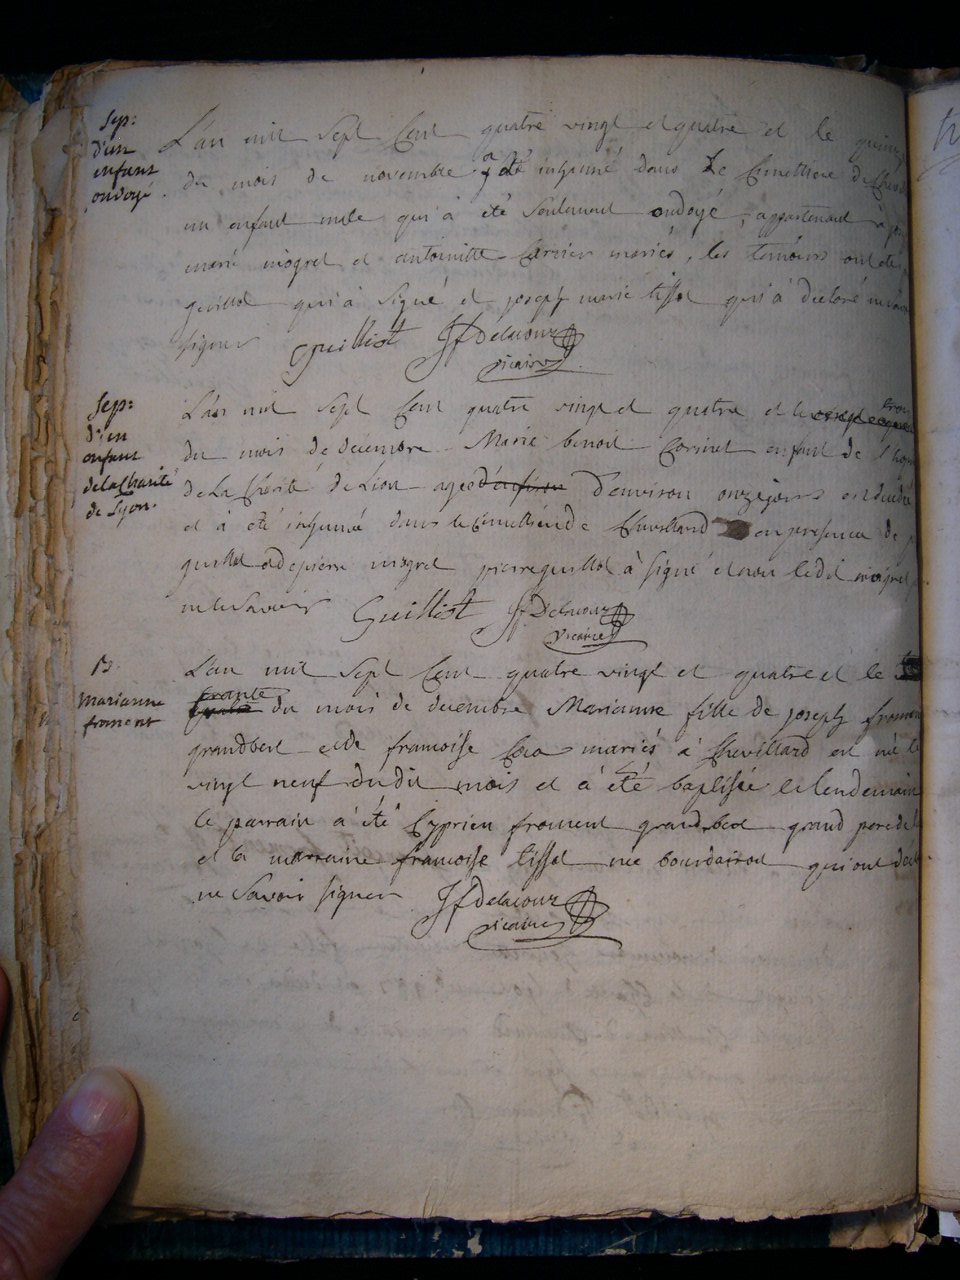 Sep:
d'un
enfant
ondoyé
L'an mil Sept Cent quatre vingt et quatre et le
du mois de novembre a été inhumé dans Le Cimettiere de
un enfant male qui à été Seulement ondoyé, appartenant à
marie mogret et antoinette Carrier mariés, les temoins ont été
guillot qui à Signé et joseph marie tissot qui à déclaré
signer Guilliot JfDelacour
vicaire
Sep:
d'un
enfant
de la Charité
de Lyon.
L'an mil Sept Cent quatre vingt et quatre et le
du mois de decembre Marie benoit Corsinet enfant de
de La Chérité de Lion agé d'environ onze jours
et à été inhumé dans le Cimettiere de Chevillard en presence de
guillot et de pierre mogret pierre guillot à signé et non ledit mogret
ne le Savoir Guilliot Jf Delacour
Vicaire
B.
Marianne
froment
L'an mil Sept Cent quatre vingt et quatre et le
trante du mois de decembre Marianne fille de joseph froment
grandbert et de francoise mariés à Chevillard est né le
vingt neuf dudit mois et à été baptisée le lendemain
le parrain à été Cyprien froment grandbert grand pere de
et la marraine francoise tissot née bourdairon qui ont
ne Savoir signer JfDelacour
vicaire